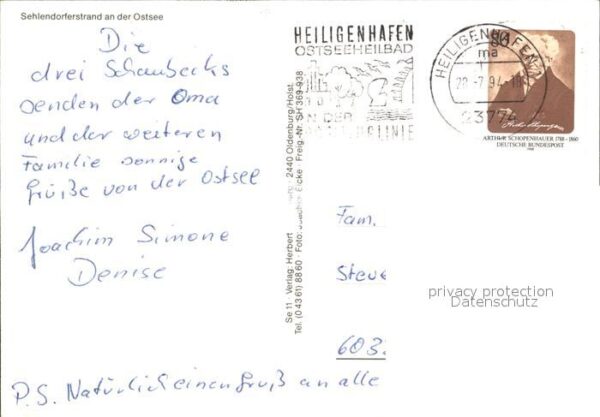 Sehlendorferstrand an der Ostsee
Die
drei Schaubecks
senden der Oma
und der weiteren
Familie sonnige
Grüße von der Ostsee
Joachim Simone
Denise
P.S. Natürlich einen Gruß an alle
Se 11 · Verlag: Herbert 2440 Oldenburg/Holst.
Tel. (0 43 61) 88 60 · Foto: Eicke · Freig.-Nr. SH 369-938
HEILIGENHAFEN
OSTSEEHEILBAD
AN DER
HEILIGENHAFEN
ma
28.-7.94-18
23774
80
ARTHUR SCHOPENHAUER 1788-1860
DEUTSCHE BUNDESPOST
1988
Fam.
Steue
603.
privacy protection
Datenschutz